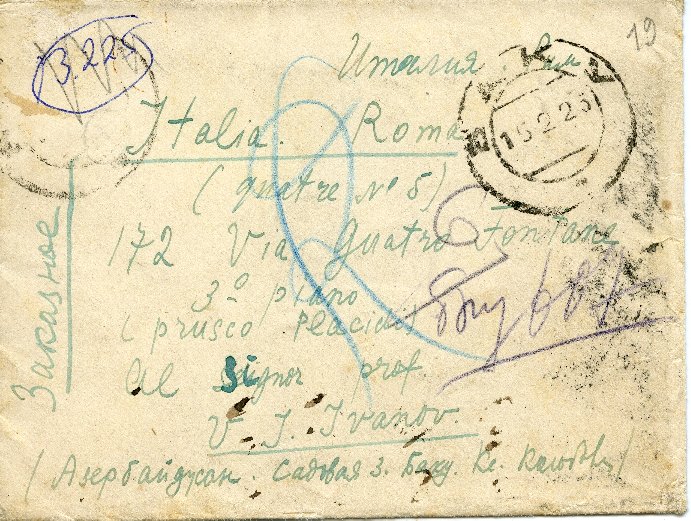 19
3.225
Италия Рим
BAKU
15 2 25
Italia. Roma
(quatre № 5)
172 Via Quatro Fontane
3° piano
(prusco Placidi)
Al Signor prof.
V. I. Ivanov.
(Азербайджан. Садовая 3. Баку.
Заказное
Баку